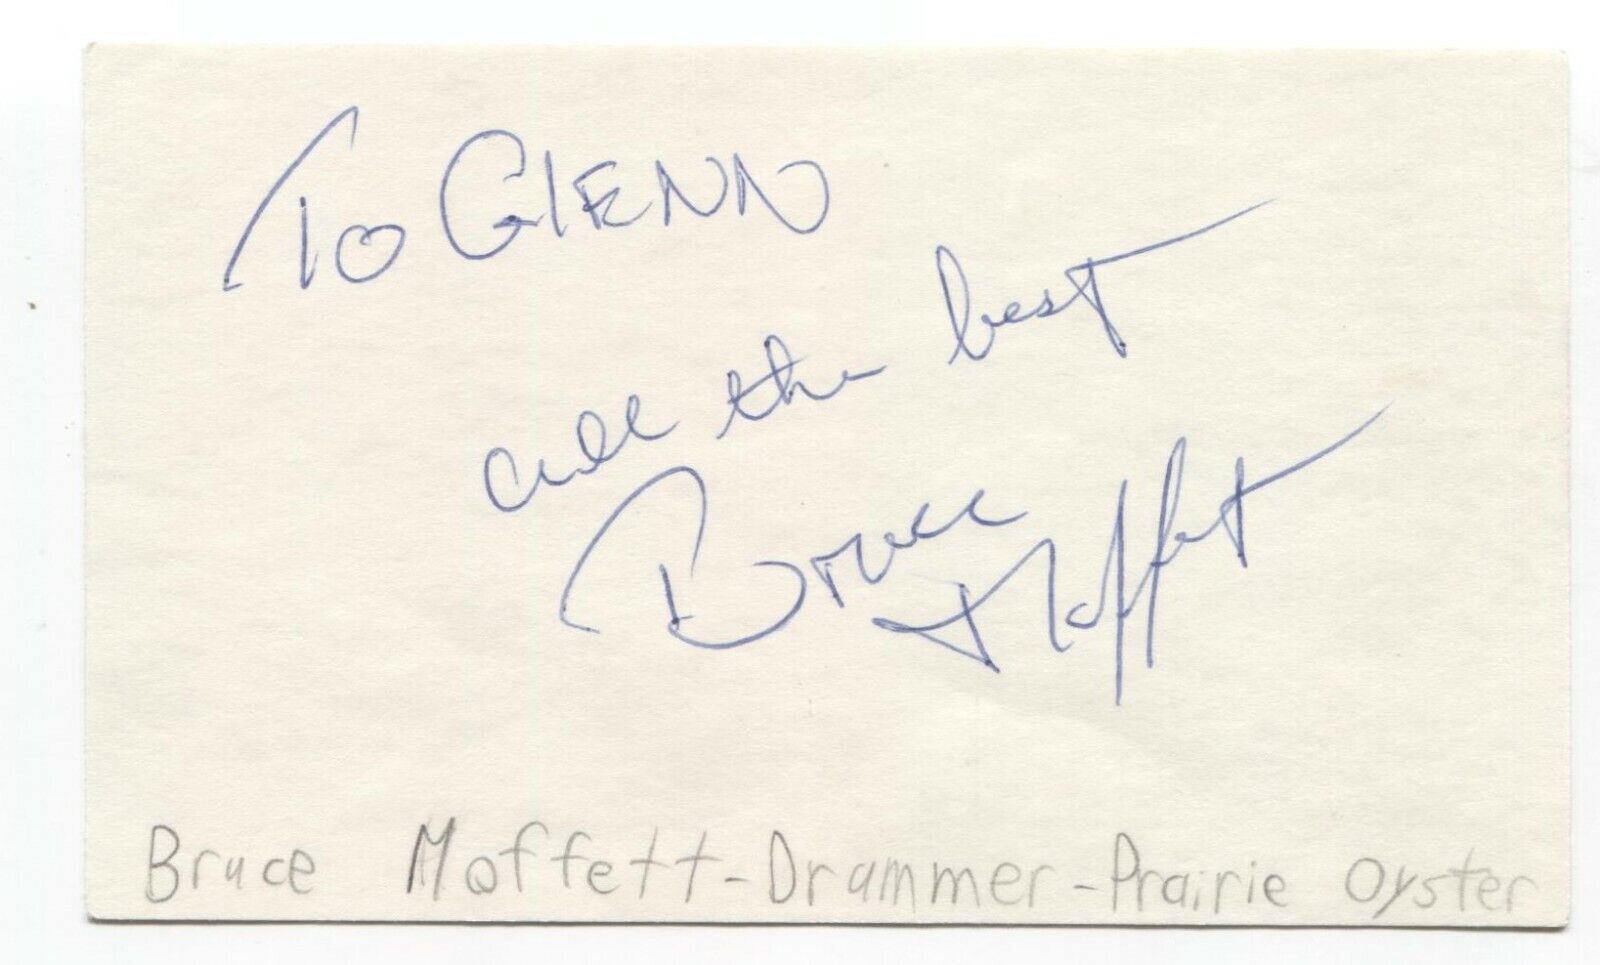 To GlENN
all the best
Bruce Moffett
Bruce Moffett - Drummer - Prairie Oyster